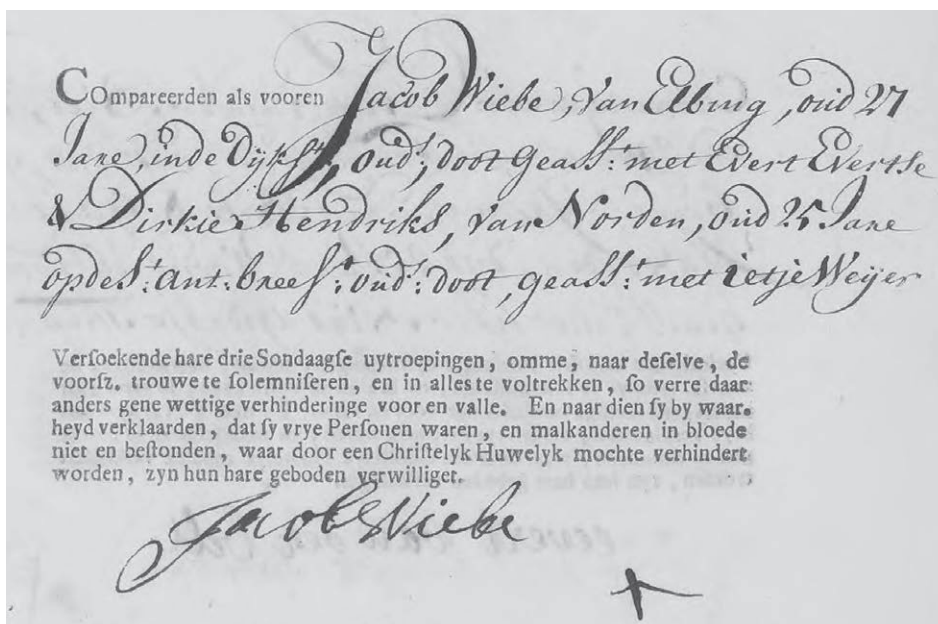 COmpareerden als vooren Jacob Wiebe, van Elbing, oud 27
Jare, inde Dijkst:, oud:, doot geasst: met Evert Evertse
& Dirkie Hendriks, van Norden, oud 25 Jare
opdest: ant: breest: oud: doot, geasst: met ietje Weyer
Verſoekende hare drie Sondaagſe uytroepingen, omme, naar deſelve, de
voorſz. trouwe te ſolemniſeren, en in alles te voltrekken, ſo verre daar
anders gene wettige verhinderinge voor en valle. En naar dien ſy by waar-
heyd verklaarden, dat ſy vrye Perſonen waren, en malkanderen in bloede
niet en beſtonden, waar door een Chriſtelyk Huwelyk mochte verhindert
worden, zyn hun hare geboden verwilliget.
Jacob Wiebe